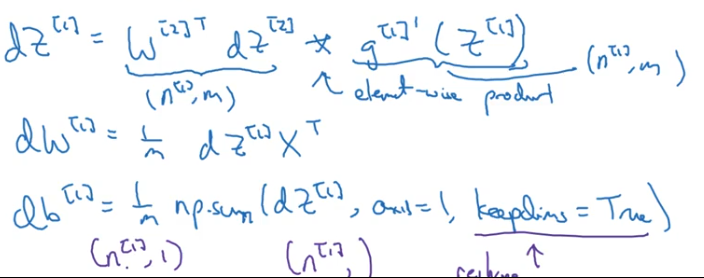 dZ^[1] = W^[2]T dZ^[2] * g^[1]' (Z^[1])
(n^[1], m) ↑ element-wise product (n^[1], m)
dW^[1] = 1/m dZ^[1] X^T
db^[1] = 1/m np.sum(dZ^[1], axis=1, keepdims = True)
(n^[1], 1) (n^[1],) ↑